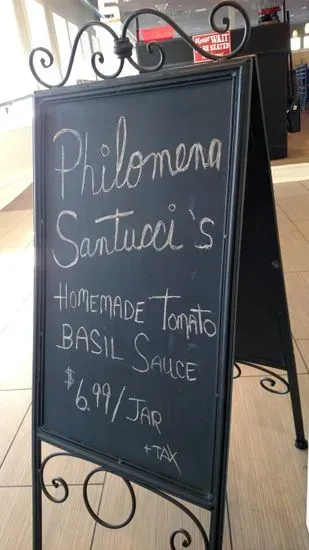 Please WAIT
to be SEATED
Philomena
Santucci's
HOMEMADE TOMATO
BASIL SAUCE
$6.99/JAR
+TAX